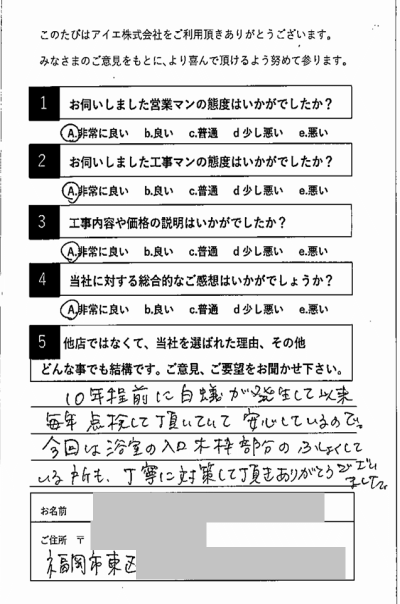 このたびはアイエ株式会社をご利用頂きありがとうございます。
みなさまのご意見をもとに、より喜んで頂けるよう努めて参ります。
1 お伺いしました営業マンの態度はいかがでしたか？
A.非常に良い b.良い c.普通 d少し悪い e.悪い
2 お伺いしました工事マンの態度はいかがでしたか？
A.非常に良い b.良い c.普通 d少し悪い e.悪い
3 工事内容や価格の説明はいかがでしたか？
A.非常に良い b.良い c.普通 d少し悪い e.悪い
4 当社に対する総合的なご感想はいかがでしょうか？
A.非常に良い b.良い c.普通 d少し悪い e.悪い
5 他店ではなくて、当社を選ばれた理由、その他
どんな事でも結構です。ご意見、ご要望をお聞かせ下さい。
10年程前に白蟻が発生して以来
毎年点検して頂いていて安心しているので。
今回は浴室の入口木枠部分のふしょくして
いる所も、丁寧に対策して頂きありがとうござい
ました。
お名前
ご住所 〒
福岡市東区